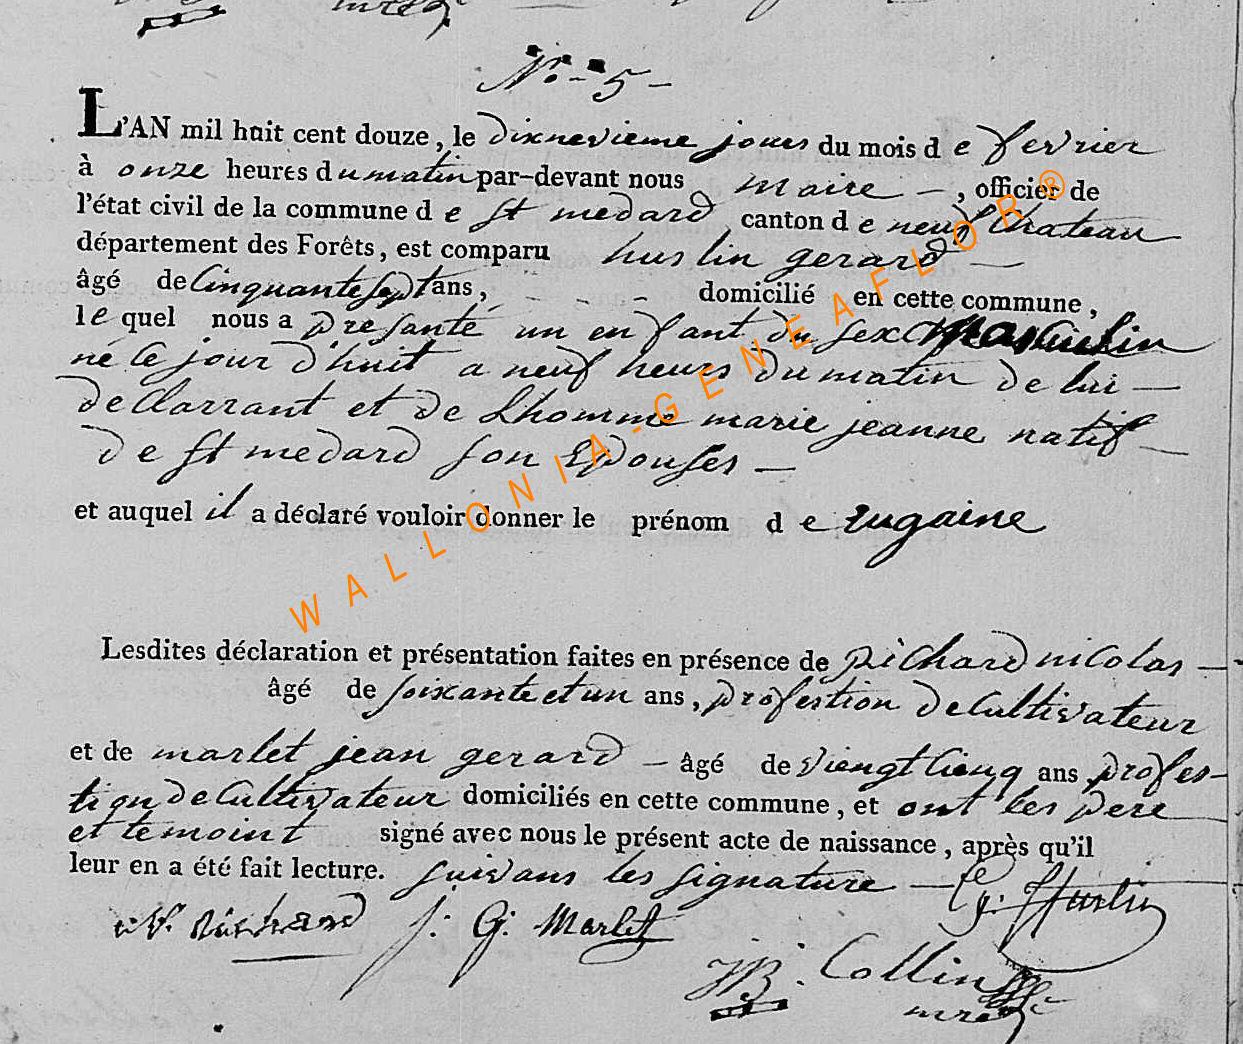 N°. 5
L'AN mil huit cent douze, le dixnevieme jours du mois d e fevrier
à onze heures du matin par-devant nous maire, officier de
l'état civil de la commune d e st medard canton d e neuf Chateau
département des Forêts, est comparu hurlin gerard
âgé de Cinquante sept ans, domicilié en cette commune,
le quel nous a presanté un enfant du sexe masculin
né le jour d'huit a neuf heurs du matin de lui
declarrant et de Lhomme marie jeanne natif
de st medard son Epouses
et auquel il a déclaré vouloir donner le prénom d e eugaine
Lesdites déclaration et présentation faites en présence de richard nicolas
âgé de soixante et un ans, profestion de Cultivateur
et de marlet jean gerard âgé de viengt Cienq ans profes-
tion de Cultivateur domiciliés en cette commune, et ont les pere
et temoint signé avec nous le présent acte de naissance, après qu'il
leur en a été fait lecture. suivans les signature
g. Hurlin
N. Richard J: G: Marlet
JB. Collin
mre
WALLONIA-GENEAFLOR®